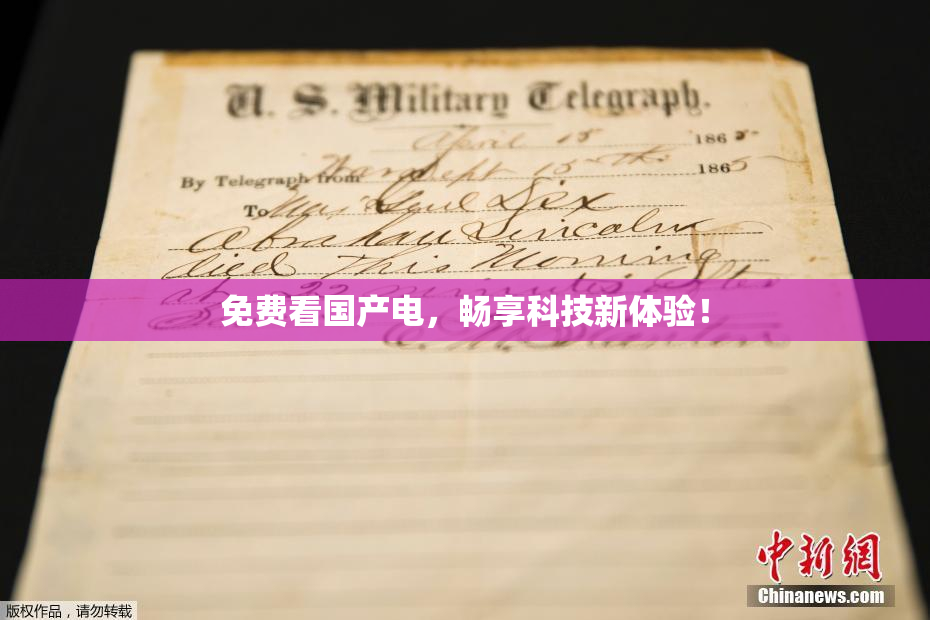 U. S. Military Telegraph.
April 15 1865
By Telegraph from War Dept 15th 1865
To Maj Genl Dix
Abraham Lincoln
died This Morning
at 22 minutes after
免费看国产电，畅享科技新体验！
E. M. Stanton
中新网
Chinanews.com
版权作品，请勿转载